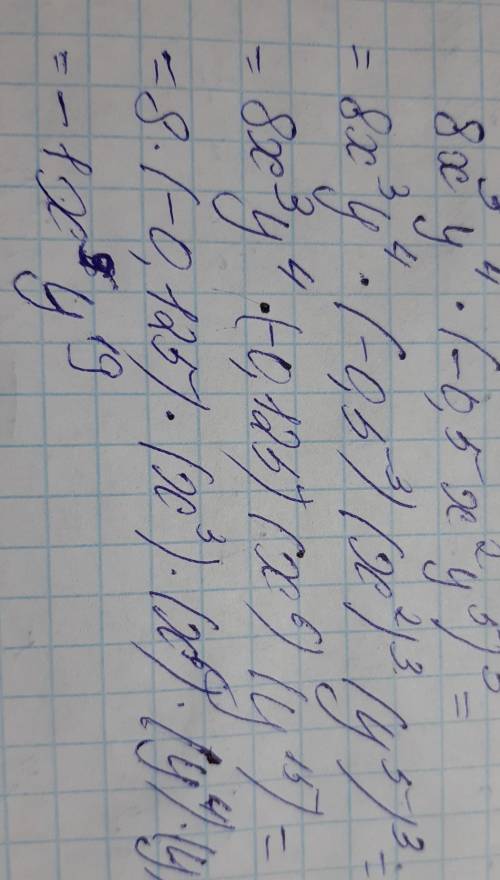 8x³y⁴ · (-0,5x²y⁵)³ =
= 8x³y⁴ · (-0,5³) (x²)³ (y⁵)³ =
= 8x³y⁴ · (-0,125) (x⁶) (y¹⁵) =
= 8 · (-0,125) · (x³) · (x⁶) · (y⁴) · (y
= -1x⁹y¹⁹